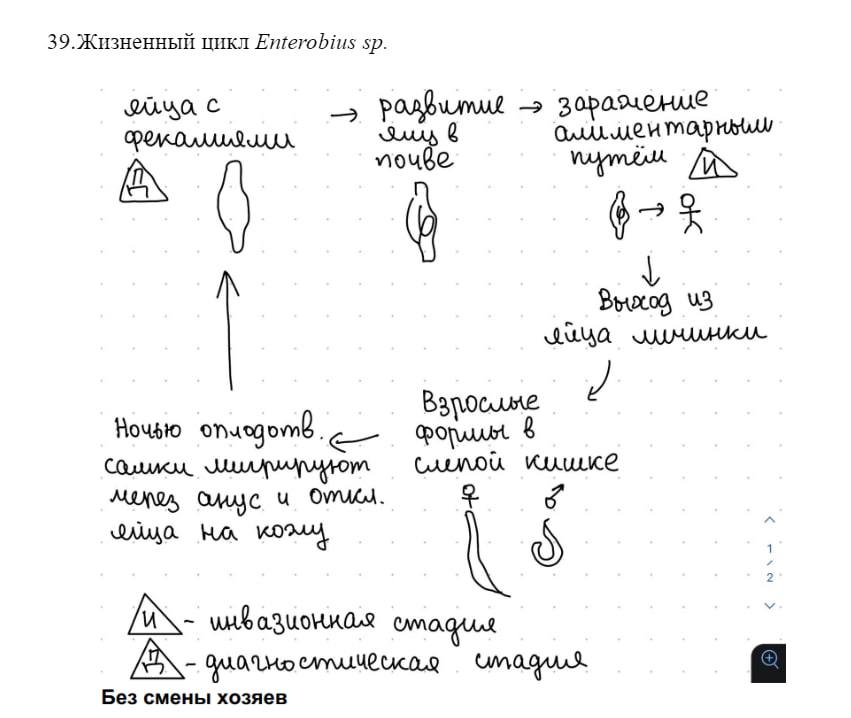 39.Жизненный цикл Enterobius sp.
яйца с фекалиями
Д
→ развитие яиц в почве
→ заражение алиментарным путём
И
Выход из яйца личинки
Взрослые формы в слепой кишке
♀ ♂
Ночью оплодотв. самки мигрируют через анус и откл. яйца на кожу
И - инвазионная стадия
Д - диагностическая стадия
Без смены хозяев
1
/
2